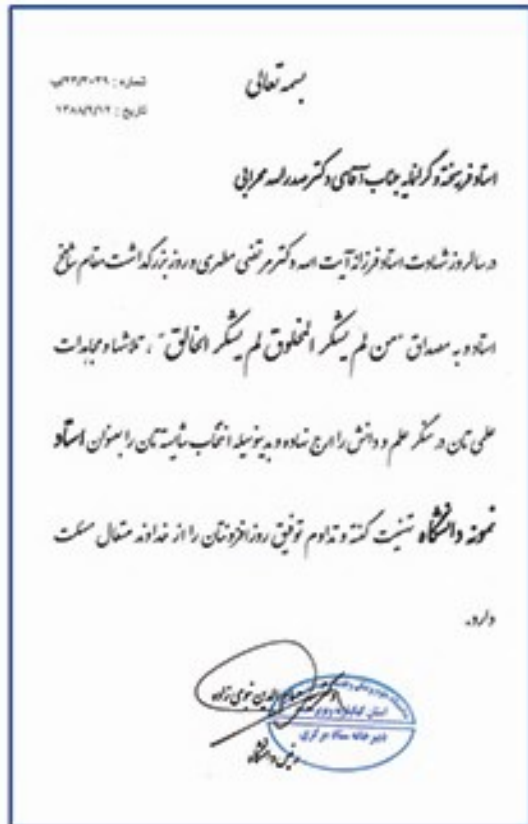 بسمه تعالی
شماره : ۲۳/۳۰۲۹/پ
تاریخ : ۱۳۸۸/۲/۱۲
استاد فریخته و گرانمایه جناب آقای دکتر صدراله محرابی
در سالروز شهادت استاد فرزانه آیت اله دکتر مرتضی مطهری و روز بزرگداشت مقام شامخ
استاد و به مصداق "من لم یشکر المخلوق لم یشکر الخالق"، تلاشها و مجاهدات
علمی تان در سنگر علم و دانش را ارج نهاده و بدینوسیله انتخاب شایسته تان را بعنوان استاد
نمونه دانشگاه تهنیت گفته و تداوم توفیق روزافزونتان را از خداوند متعال مسئلت
دارد.
دکتر سید الدین نبوی زاده
رئیس دانشگاه
دبیرخانه ستاد مرکزی